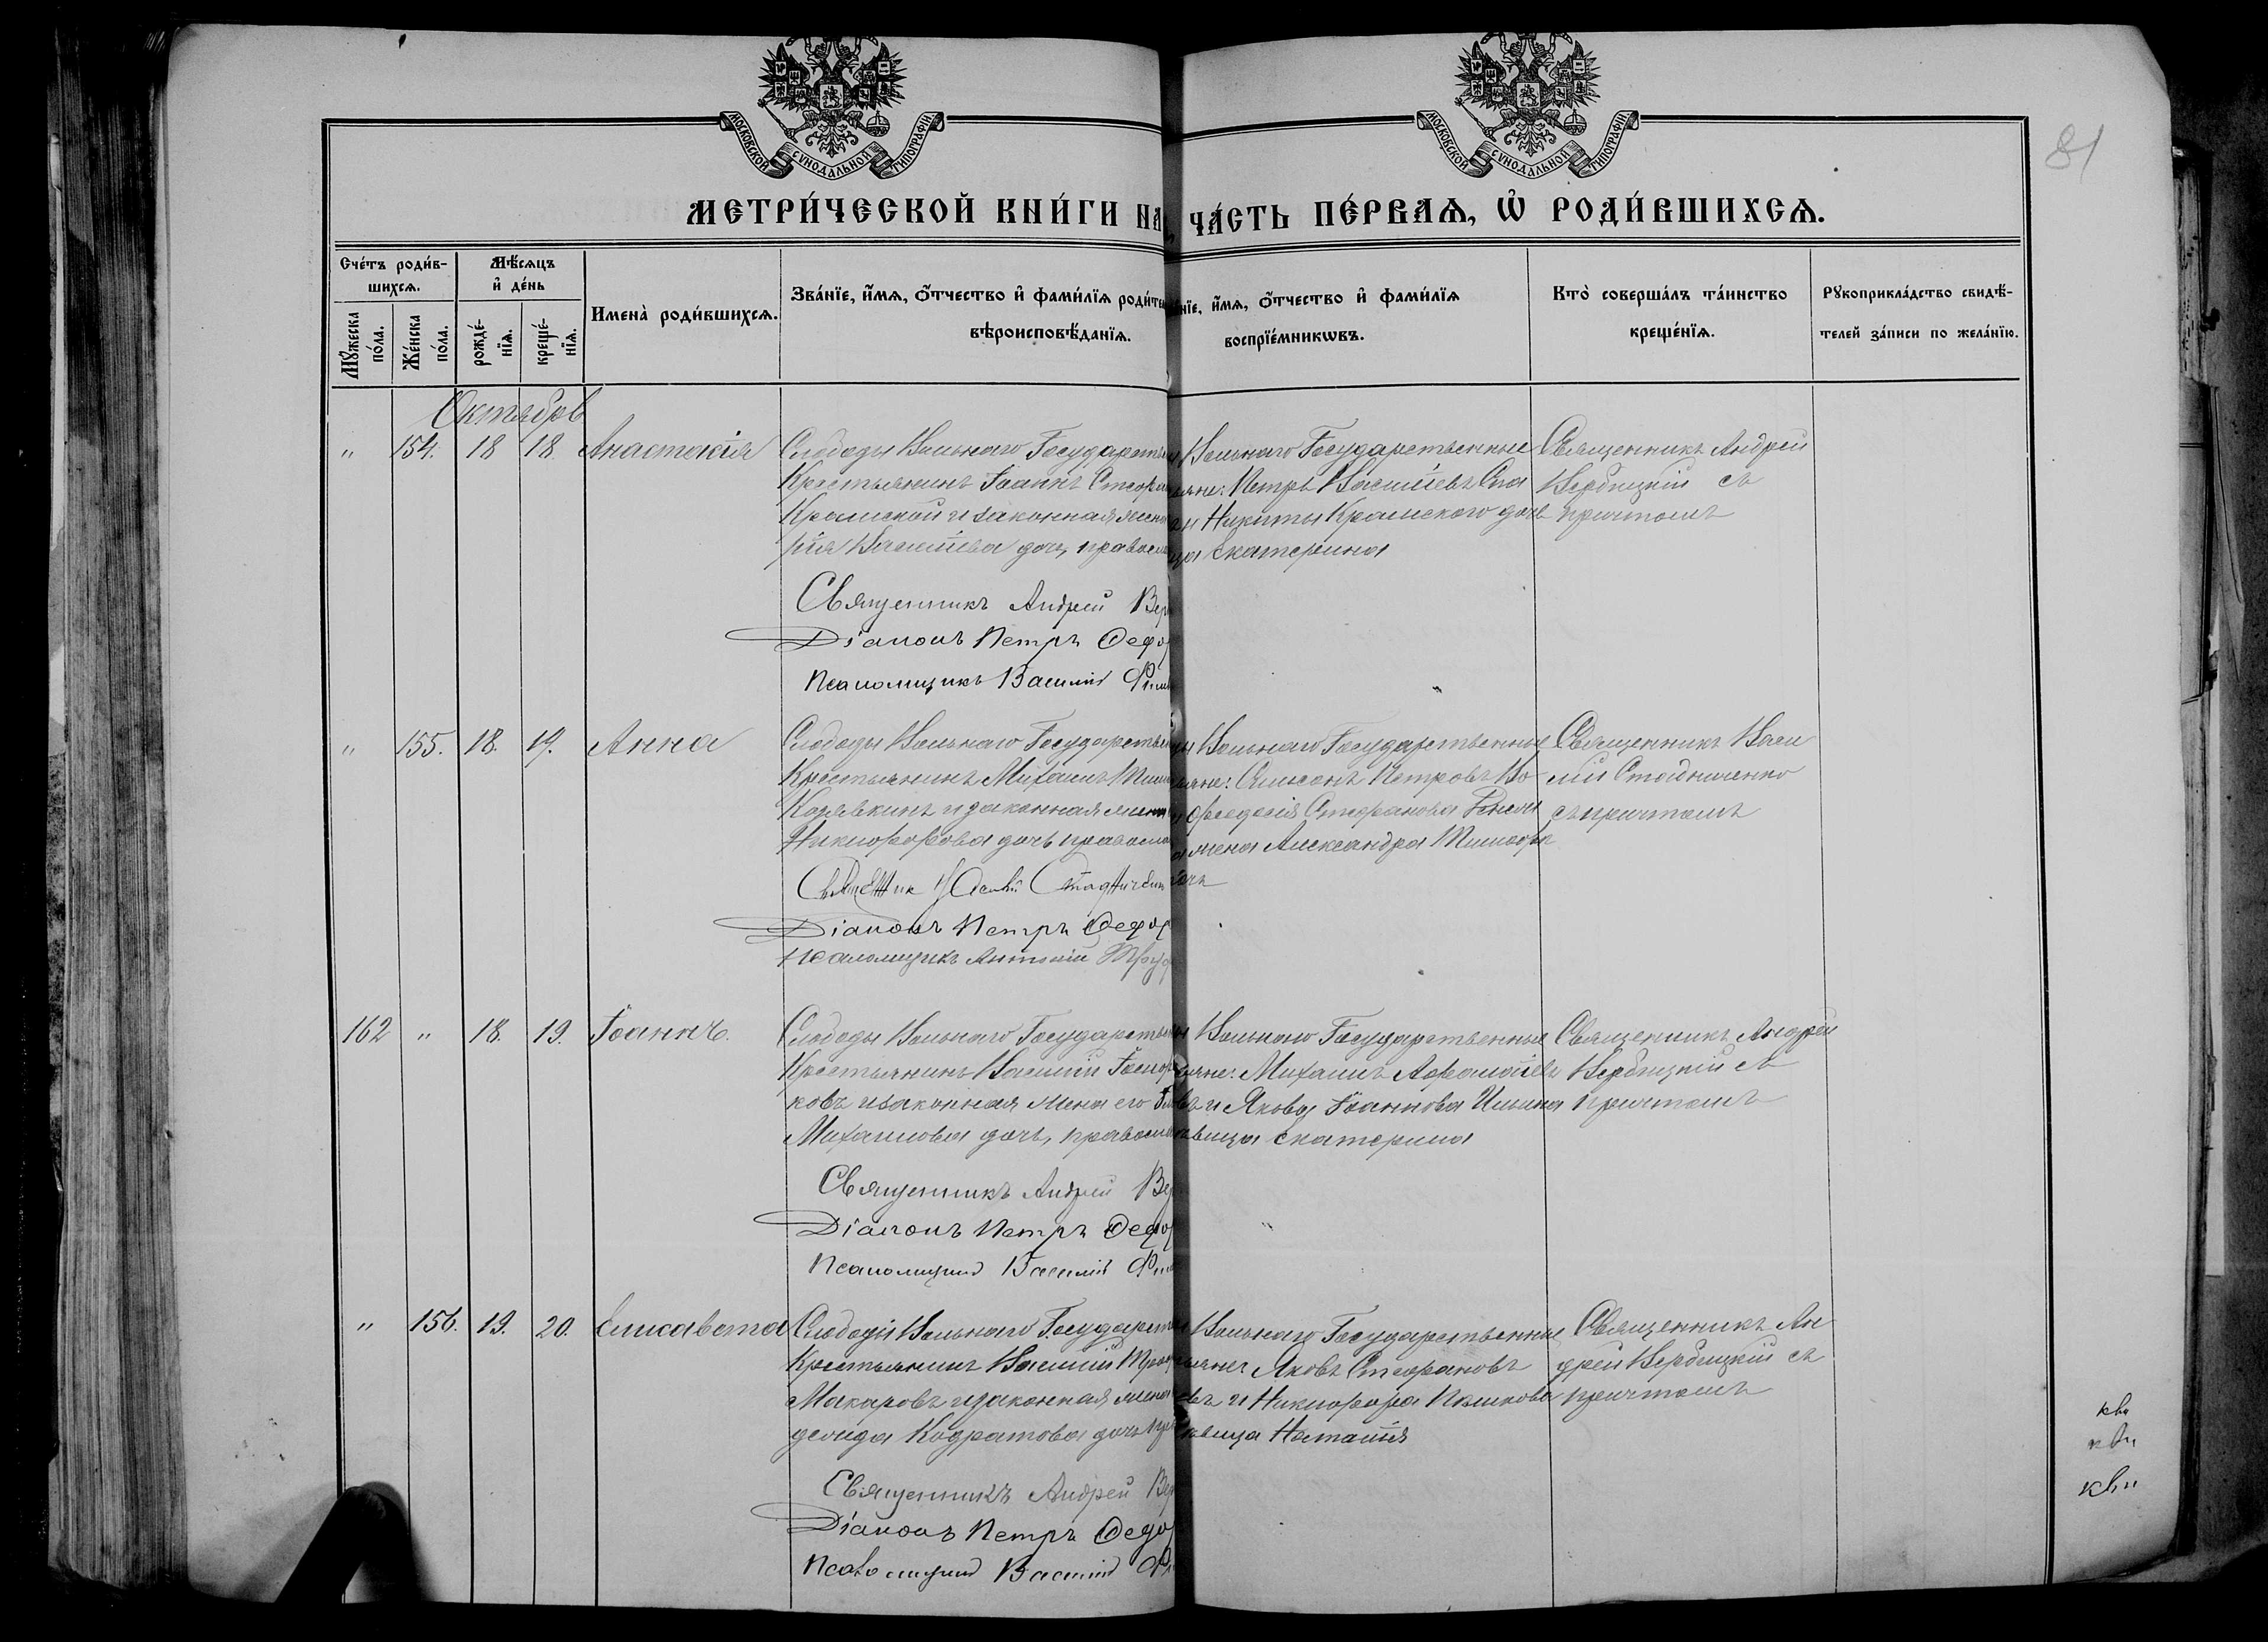 МОСКОВСКОЙ СѴНОДАЛЬНОЙ ТИПОГРАФІИ
МОСКОВСКОЙ СѴНОДАЛЬНОЙ ТИПОГРАФІИ
81
МЕТРИ́ЧЕСКОЙ КНИ́ГИ НА
ЧА́СТЬ ПЕ́РВАѦ, Ѡ҆ РОДИ́ВШИХСѦ.
Сче́тъ роди́в-
шихсѧ.
Мѣ́сѧцъ
и҆ де́нь
Мꙋ́жеска
по́ла.
Же́нска
по́ла.
рожде́-
нїѧ.
креще́-
нїѧ.
Имена̀ роди́вшихсѧ.
Зва́нїе, и҆́мѧ, ѻ҆́тчество и҆ фами́лїѧ роди́те
вѣроисповѣ́данїѧ.
нїе, и҆́мѧ, ѻ҆́тчество и҆ фами́лїѧ
воспрїе́мникѡвъ.
Кто̀ соверша́лъ та́инство
креще́нїѧ.
Рꙋкоприкла́дство свидѣ́-
телей за́писи по жела́нїю.
Октябрь
" 154. 18 18 Анастасія
Слободы Вольнаго Государств
Крестьянинъ Іоаннъ Стефа
Крамской и законная жена
Васильева дочь, правосл
Священникъ Андрей Вер
Діаконъ Петръ Федо
Псаломщикъ Василій Фили
Вольнаго Государственные
Петръ Васильевъ
и Никиты Крамского дочь
Екатерина
Священникъ Андрей
Вербицкій съ
причтомъ
" 155. 18. 19. Анна
Слободы Вольнаго Государствен
Крестьянинъ Михаилъ
Козявкинъ и законная жена
Никифорова дочь правосла
Священник Василий Стадниченк
Діаконъ Петръ Федо
Псаломщикъ Антоній Труд
Вольнаго Государственные
Симеонъ Петровъ Ко
Феодосія Стефанова
жена Александра Тимофе
дочь
Священникъ Васи
лій Стадниченко
съ причтомъ
162 " 18. 19. Іоаннъ.
Слободы Вольнаго Государствен
Крестьянинъ Василій
ковъ и законная жена его
Михайлова дочь, правосла
Священникъ Андрей Ве
Діаконъ Петръ Федо
Псаломщикъ Василій Фи
Вольнаго Государственные
Михаилъ
и Якова Іоаннова Ильина
вица Екатерина
Священникъ Андрей
Вербицкій съ
причтомъ
" 156. 19. 20. Елисавета
Слободы Вольнаго Государств
Крестьянинъ Василій Проф
Макаровъ и законная жена
Кодратова дочь пр
Священникъ Андрей Вер
Діаконъ Петръ Федо
Псаломщикъ Василій Фи
Вольнаго Государственные
Яковъ Стефановъ
въ и Никифора Пашкова
вица Наталія
Священникъ Ан
дрей Вербицкій съ
причтомъ